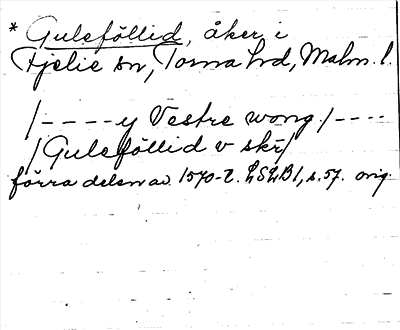 * Guleföllid, åker i
Fjelie sn, Torna hd, Malm. l.
/----y Vestre wong/----
/Guleföllid v skr/
förra delen av 1570-t. LSLB1, s.57. orig.